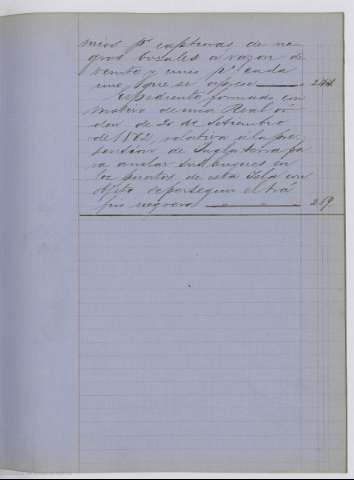 mios pr capturas de ne-
gros bozales a razon de
veinte y cinco ps cada
uno, que se
Expediente formado con
motivo de una Real ór-
den de 20 de Setiembre
de 1862, relativa a la pre-
tension de Inglaterra pa-
ra anclar sus buques en
los puertos de esta Isla con
objeto de perseguir el trá-
fico negrero 259